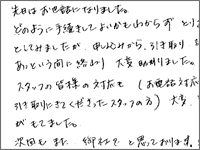 先日はお世話になりました。
どのように手続きしてよいかもわからず とり
としてみましたが、申し込みから、引き取り
あっという間に終わり 大変助かりました。
スタッフの皆様の対応も（お電話対応
引き取りにきてくださったスタッフの方）大変
がもてました。
次回もまた 御社で と思っております。